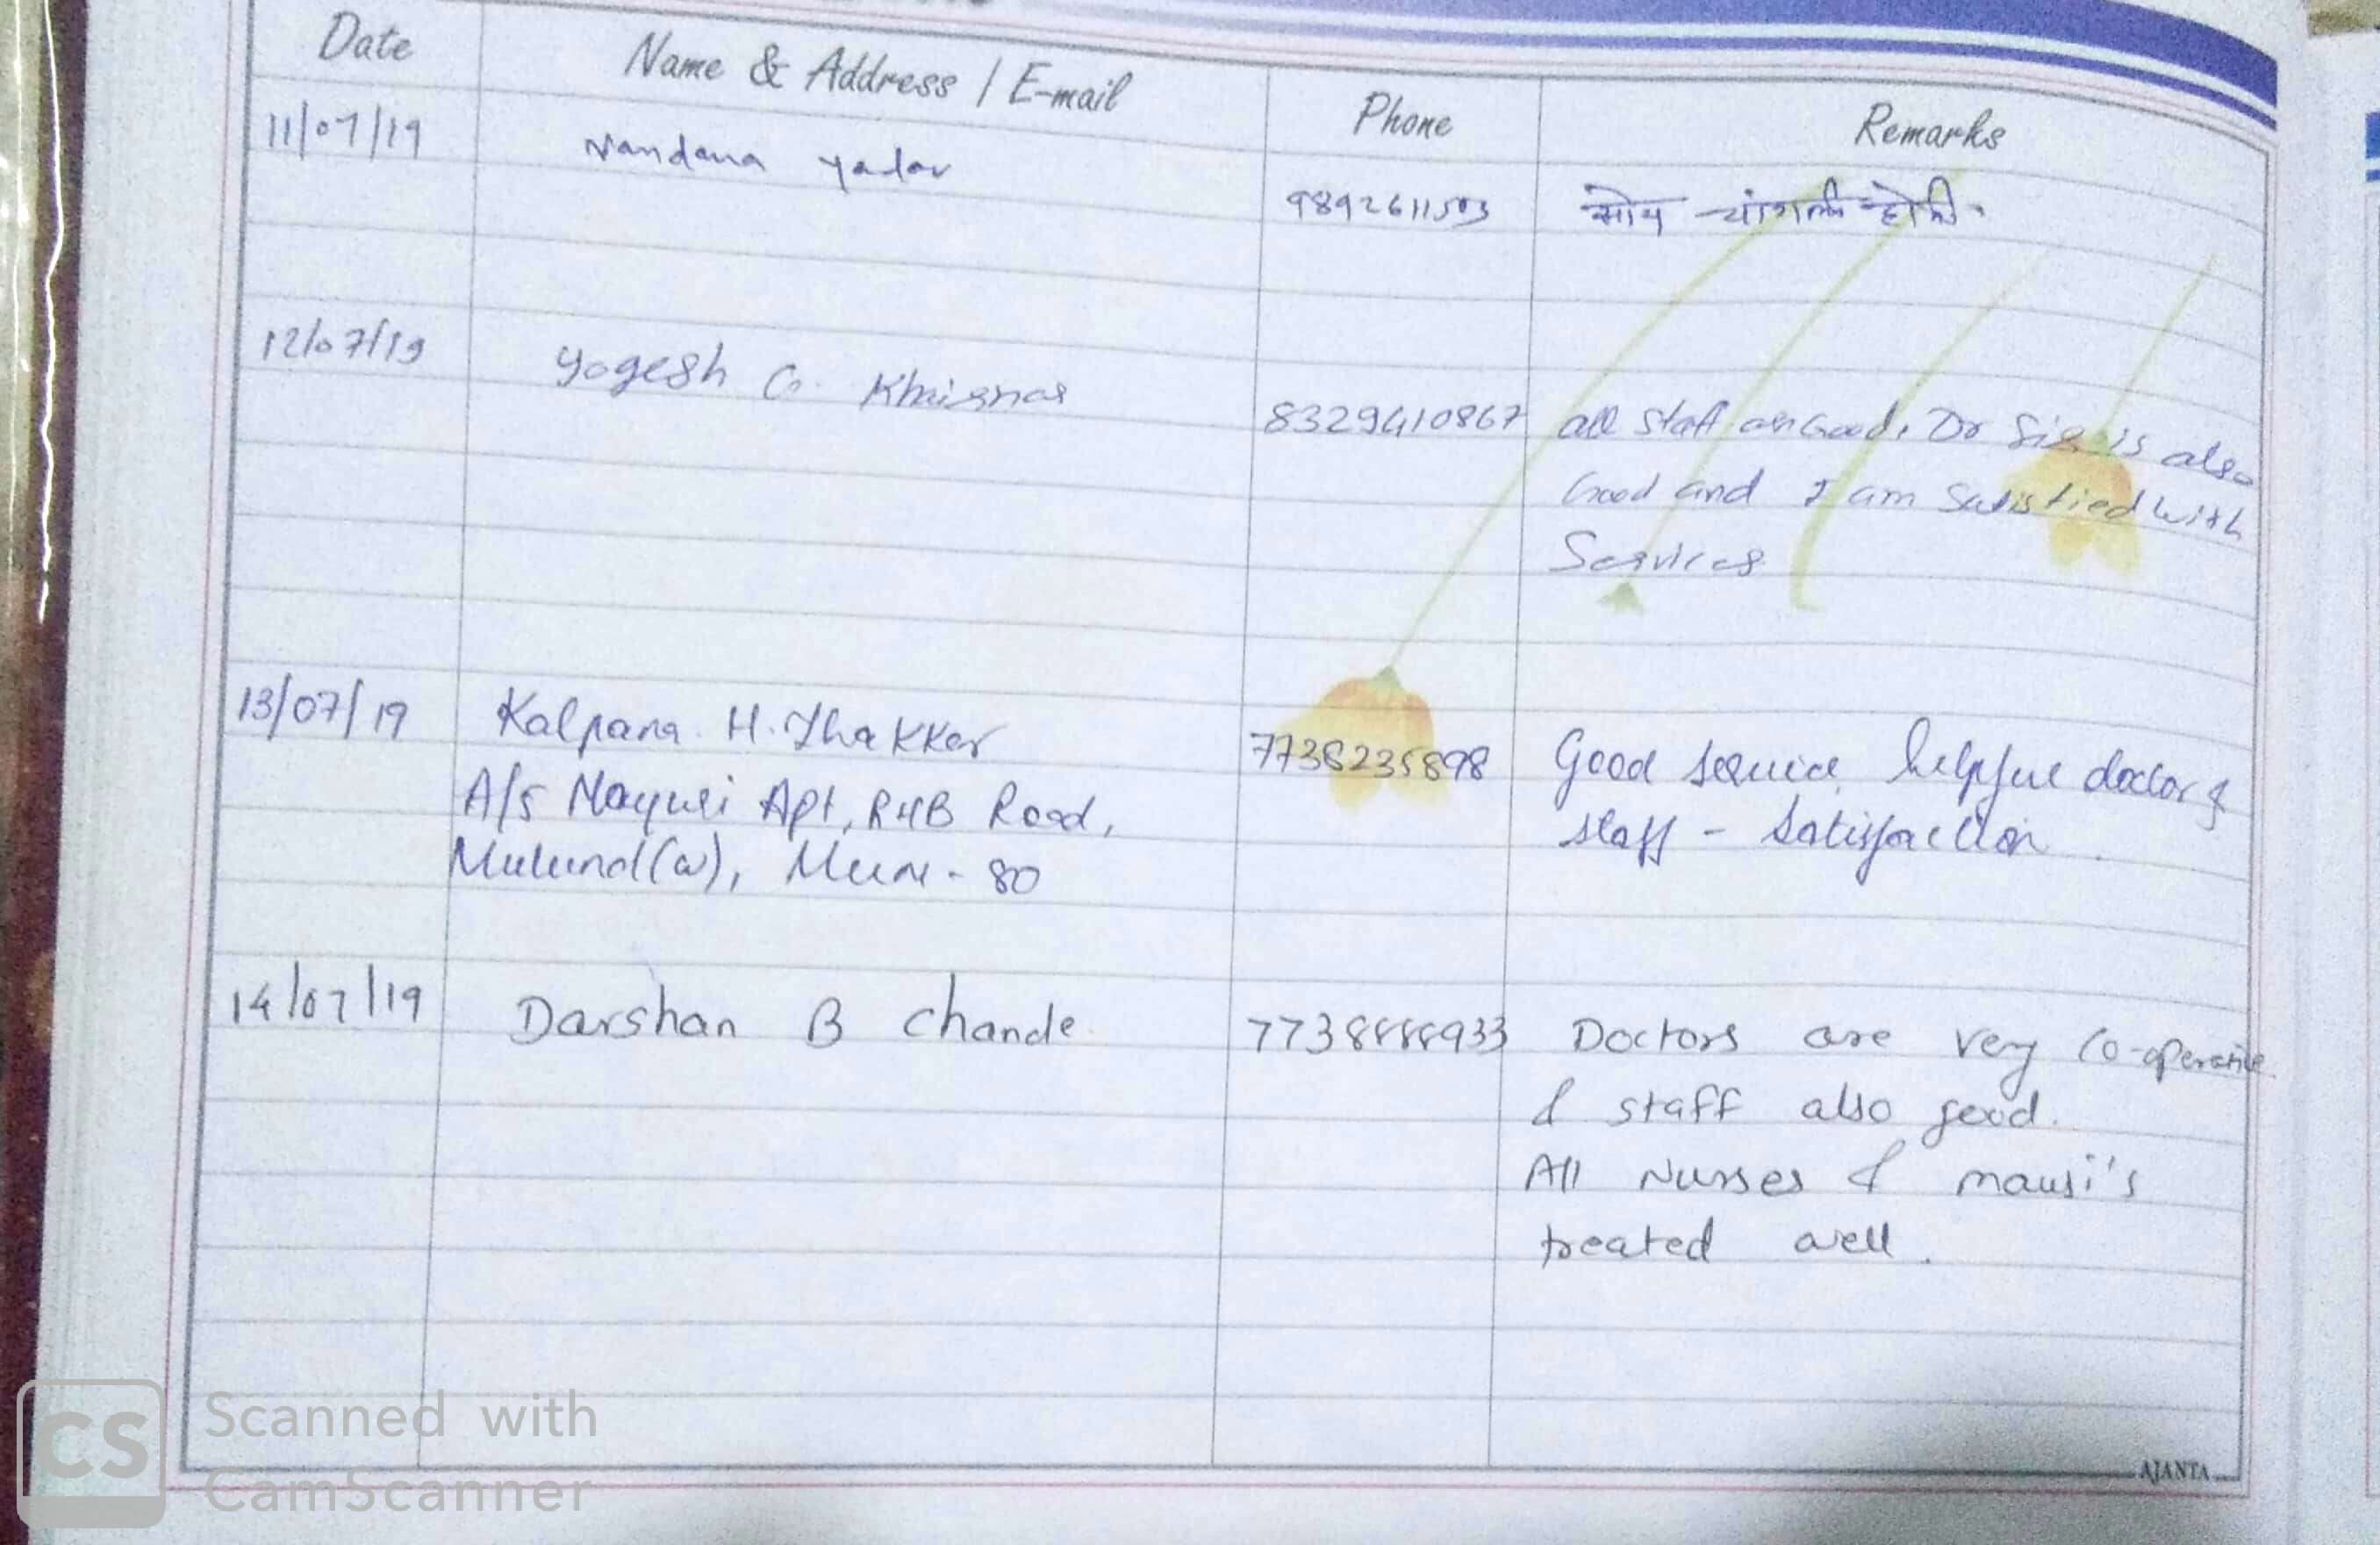 Date Name & Address / E-mail Phone Remarks
11/07/19 Nandana Yadav 9892611503 सोय चांगली होती.
12/07/19 Yogesh G. Khairnar 8329410867 all staff are Good, Dr Sir is also
Good and I am Satisfied with
Services
13/07/19 Kalpana H. Thakker 7738235898 Good service, helpful doctor &
A/5 Mayuri Apt, RHB Road, staff - Satisfaction
Mulund(w), Mum - 80
14/07/19 Darshan B Chande 7738888933 Doctors are very co-operative
& staff also good.
All Nurses & mausi's
treated well.
AJANTA
CS Scanned with
CamScanner